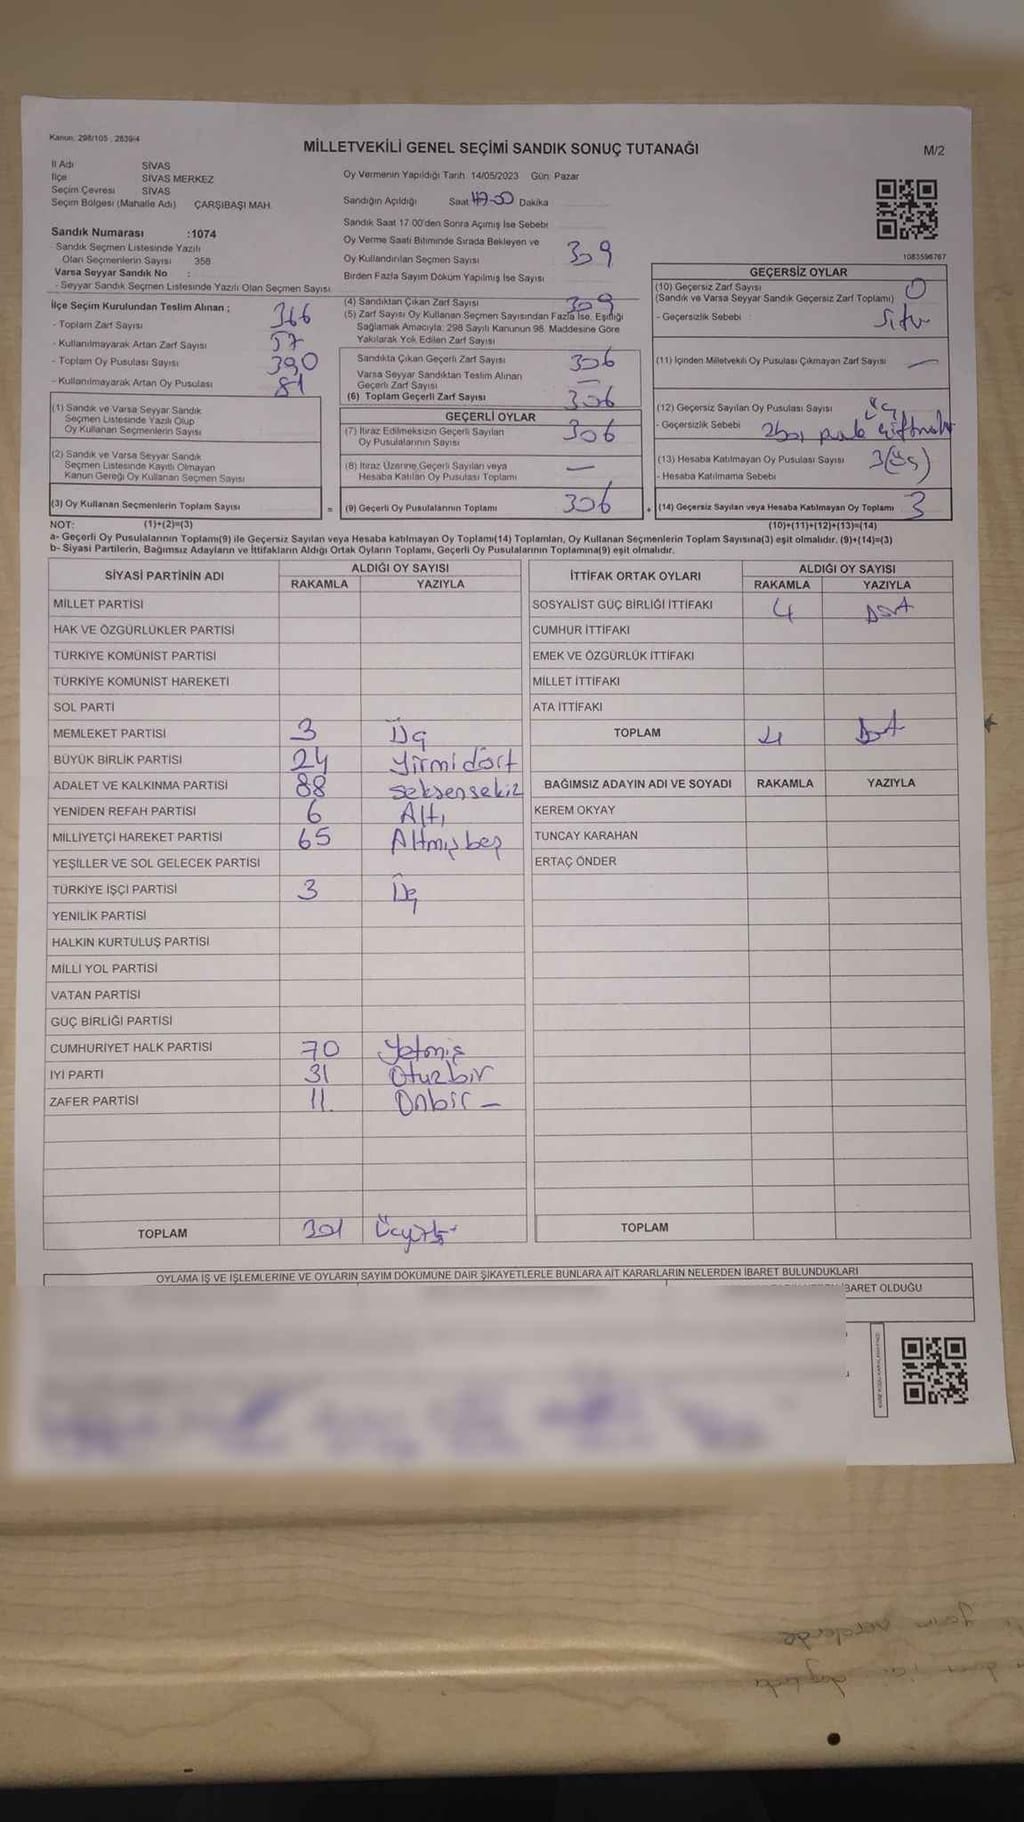 Kanun: 298/105 , 2839/4
MİLLETVEKİLİ GENEL SEÇİMİ SANDIK SONUÇ TUTANAĞI
M/2
İl Adı SİVAS
İlçe SİVAS MERKEZ
Seçim Çevresi SİVAS
Seçim Bölgesi (Mahalle Adı) ÇARŞIBAŞI MAH.
Oy Vermenin Yapıldığı Tarih: 14/05/2023 Gün: Pazar
Sandığın Açıldığı Saat 17-00 Dakika
Sandık Saat 17:00'den Sonra Açılmış İse Sebebi
Sandık Numarası :1074
- Sandık Seçmen Listesinde Yazılı
Olan Seçmenlerin Sayısı 358
Varsa Seyyar Sandık No :
- Seyyar Sandık Seçmen Listesinde Yazılı Olan Seçmen Sayısı
Oy Verme Saati Bitiminde Sırada Bekleyen ve
Oy Kullandırılan Seçmen Sayısı 309
Birden Fazla Sayım Döküm Yapılmış İse Sayısı
1083596767
İlçe Seçim Kurulundan Teslim Alınan ;
- Toplam Zarf Sayısı 366
- Kullanılmayarak Artan Zarf Sayısı 57
- Toplam Oy Pusulası Sayısı 390
- Kullanılmayarak Artan Oy Pusulası 81
(1) Sandık ve Varsa Seyyar Sandık
Seçmen Listesinde Yazılı Olup
Oy Kullanan Seçmenlerin Sayısı
(2) Sandık ve Varsa Seyyar Sandık
Seçmen Listesinde Kayıtlı Olmayan
Kanun Gereği Oy Kullanan Seçmen Sayısı
(3) Oy Kullanan Seçmenlerin Toplam Sayısı =
(4) Sandıktan Çıkan Zarf Sayısı 309
(5) Zarf Sayısı Oy Kullanan Seçmen Sayısından Fazla İse, Eşitliği
Sağlamak Amacıyla; 298 Sayılı Kanunun 98. Maddesine Göre
Yakılarak Yok Edilen Zarf Sayısı
Sandıkta Çıkan Geçerli Zarf Sayısı 306
Varsa Seyyar Sandıktan Teslim Alınan
Geçerli Zarf Sayısı —
(6) Toplam Geçerli Zarf Sayısı 306
GEÇERLİ OYLAR
(7) İtiraz Edilmeksizin Geçerli Sayılan
Oy Pusulalarının Sayısı 306
(8) İtiraz Üzerine Geçerli Sayılan veya
Hesaba Katılan Oy Pusulası Toplamı —
(9) Geçerli Oy Pusulalarının Toplamı 306 +
GEÇERSİZ OYLAR
(10) Geçersiz Zarf Sayısı 0
(Sandık ve Varsa Seyyar Sandık Geçersiz Zarf Toplamı)
- Geçersizlik Sebebi : Sıfır
(11) İçinden Milletvekili Oy Pusulası Çıkmayan Zarf Sayısı —
(12) Geçersiz Sayılan Oy Pusulası Sayısı Üç
- Geçersizlik Sebebi
(13) Hesaba Katılmayan Oy Pusulası Sayısı 3 (Üç)
- Hesaba Katılmama Sebebi
(14) Geçersiz Sayılan veya Hesaba Katılmayan Oy Toplamı 3
NOT: (1)+(2)=(3) (10)+(11)+(12)+(13)=(14)
a- Geçerli Oy Pusulalarının Toplamı(9) ile Geçersiz Sayılan veya Hesaba katılmayan Oy Toplamı(14) Toplamları, Oy Kullanan Seçmenlerin Toplam Sayısına(3) eşit olmalıdır. (9)+(14)=(3)
b- Siyasi Partilerin, Bağımsız Adayların ve İttifakların Aldığı Ortak Oyların Toplamı, Geçerli Oy Pusulalarının Toplamına(9) eşit olmalıdır.
SİYASİ PARTİNİN ADI ALDIĞI OY SAYISI
RAKAMLA YAZIYLA
MİLLET PARTİSİ
HAK VE ÖZGÜRLÜKLER PARTİSİ
TÜRKİYE KOMÜNİST PARTİSİ
TÜRKİYE KOMÜNİST HAREKETİ
SOL PARTİ
MEMLEKET PARTİSİ 3 Üç
BÜYÜK BİRLİK PARTİSİ 24 Yirmidört
ADALET VE KALKINMA PARTİSİ 88 seksensekiz
YENİDEN REFAH PARTİSİ 6 Altı
MİLLİYETÇİ HAREKET PARTİSİ 65 Altmışbeş
YEŞİLLER VE SOL GELECEK PARTİSİ
TÜRKİYE İŞÇİ PARTİSİ 3 Üç
YENİLİK PARTİSİ
HALKIN KURTULUŞ PARTİSİ
MİLLİ YOL PARTİSİ
VATAN PARTİSİ
GÜÇ BİRLİĞİ PARTİSİ
CUMHURİYET HALK PARTİSİ 70 Yetmiş
İYİ PARTİ 31 Otuzbir
ZAFER PARTİSİ 11. Onbir —
TOPLAM 301
İTTİFAK ORTAK OYLARI ALDIĞI OY SAYISI
RAKAMLA YAZIYLA
SOSYALİST GÜÇ BİRLİĞİ İTTİFAKI 4 Dört
CUMHUR İTTİFAKI
EMEK VE ÖZGÜRLÜK İTTİFAKI
MİLLET İTTİFAKI
ATA İTTİFAKI
TOPLAM 4 Dört
BAĞIMSIZ ADAYIN ADI VE SOYADI RAKAMLA YAZIYLA
KEREM OKYAY
TUNCAY KARAHAN
ERTAÇ ÖNDER
TOPLAM
OYLAMA İŞ VE İŞLEMLERİNE VE OYLARIN SAYIM DÖKÜMÜNE DAİR ŞİKAYETLERLE BUNLARA AİT KARARLARIN NELERDEN İBARET BULUNDUKLARI
İBARET OLDUĞU